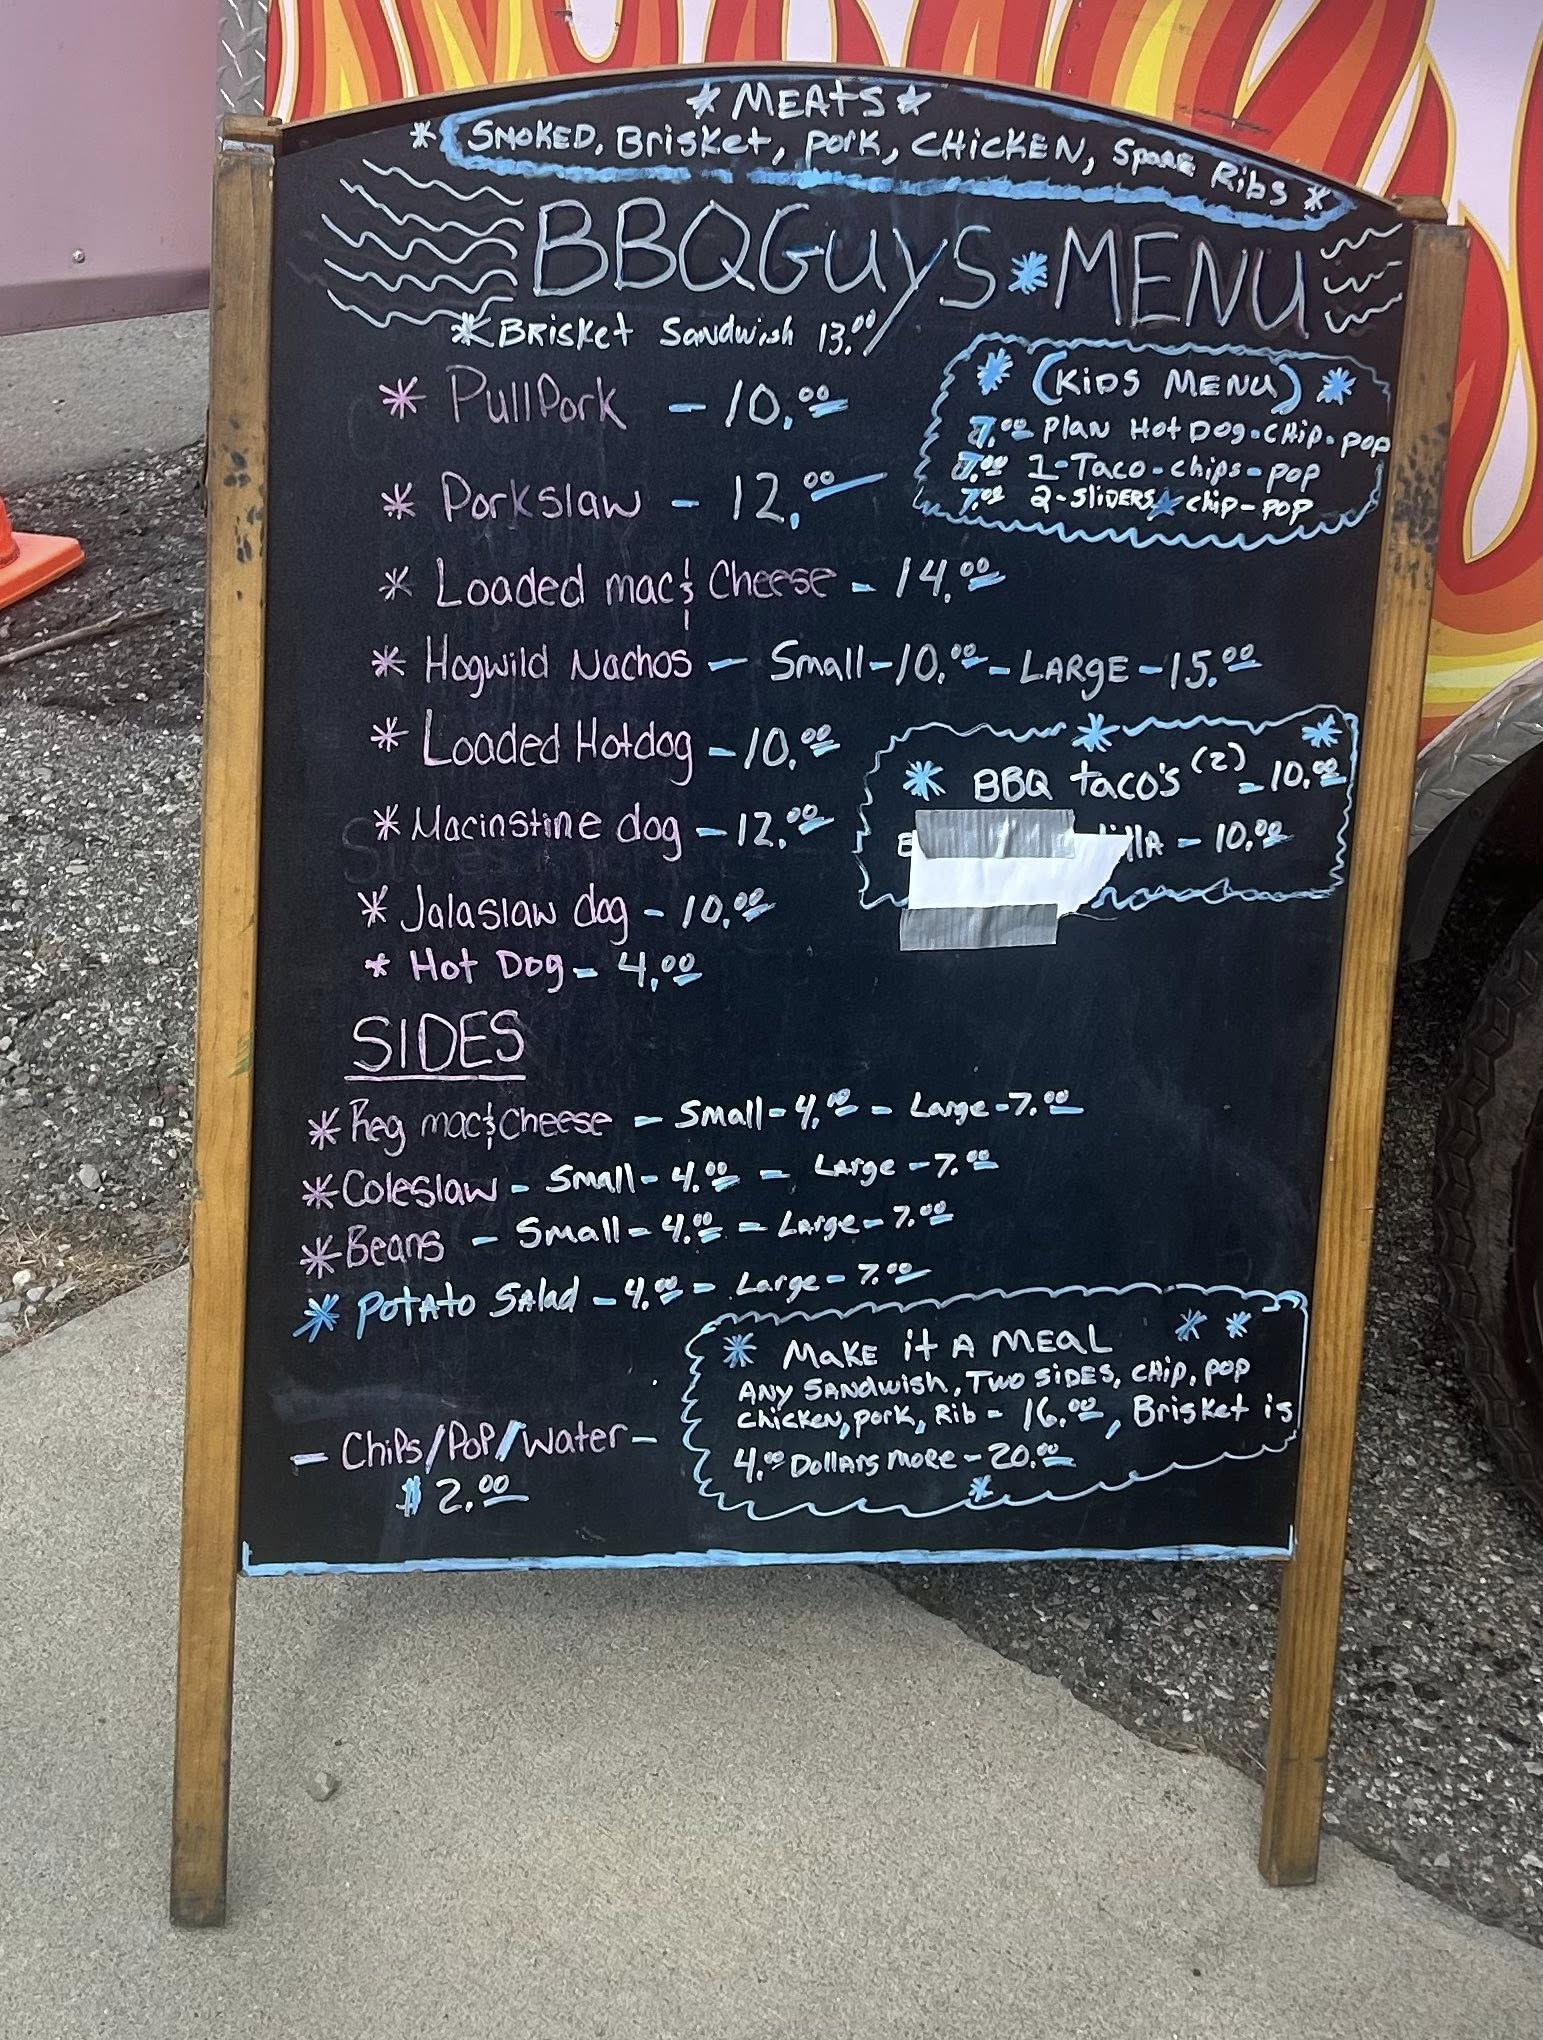 *MEATS*
* SMOKED, Brisket, Pork, CHICKEN, Spare Ribs *
BBQGuys * MENU
* Brisket Sandwish 13.00
* PullPork - 10.00
* Porkslaw - 12.00
* Loaded mac & Cheese - 14.00
* Hogwild Nachos - Small - 10.00 - LARGE - 15.00
* Loaded Hotdog - 10.00
* Macinstine dog - 12.00
* Jalaslaw dog - 10.00
* Hot Dog - 4.00
* (KIDS MENU) *
7.00 Plan Hot Dog - CHip - pop
1-Taco - chips - pop
7.00 2-SLIDERS * chip - POP
* BBQ taco's (2) - 10.00
- 10.00
SIDES
* Reg mac & Cheese - Small - 4.00 - Large - 7.00
* Coleslaw - Small - 4.00 - Large - 7.00
* Beans - Small - 4.00 - Large - 7.00
* Potato Salad - 4.00 - Large - 7.00
- Chips/Pop/Water -
$2.00
* MaKE it A MEAL * *
ANY SANDwish, Two SIDES, CHip, pop
Chicken, pork, Rib - 16.00, Brisket is
4.00 Dollars more - 20.00
*